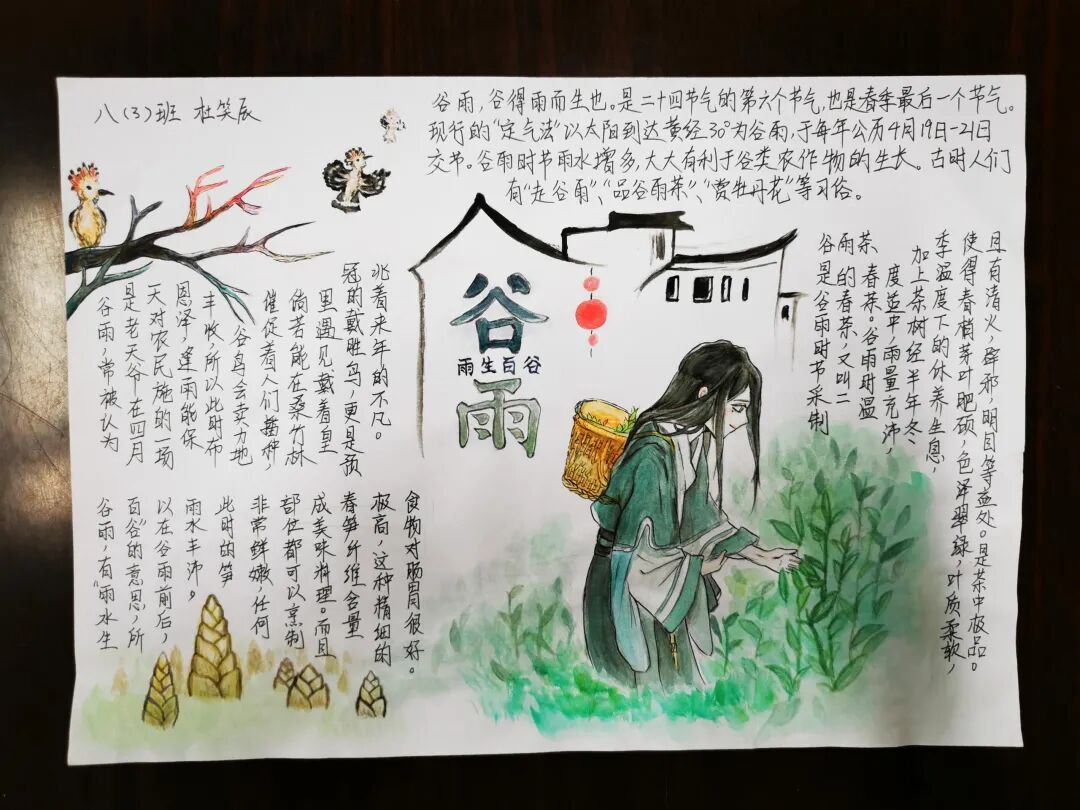 八(3)班 杜笑辰
谷雨，谷得雨而生也。是二十四节气的第六个节气，也是春季最后一个节气。
现行的“定气法”以太阳到达黄经30°为谷雨，于每年公历4月19日-21日
交节。谷雨时节雨水增多，大大有利于谷类农作物的生长。古时人们
有“走谷雨”、“品谷雨茶”、“赏牡丹花”等习俗。
谷
雨生百谷
雨
谷雨，常被认为
是老天爷在四月
天对农民施的一场
恩泽，逢雨能保
丰收所以此时布
谷鸟会卖力地
催促着人们播种，
倘若能在桑竹林
里遇见戴着皇
冠的戴胜鸟，更是预
兆着来年的不凡。
谷雨茶
是谷雨时节采制
的春茶，又叫二
春茶。谷雨时温
度适中，雨量充沛，
加上茶树经半年冬
季温度下的休养生息，
使得春梢芽叶肥硕，色泽翠绿，叶质柔软，
且有清火，辟邪，明目等益处。是茶中极品。
谷雨，有“雨水生
百谷”的意思，所
以在谷雨前后，
雨水丰沛。
此时的笋
非常鲜嫩，任何
部位都可以烹制
成美味料理。而且
春笋纤维含量
极高，这种精细的
食物对肠胃很好。